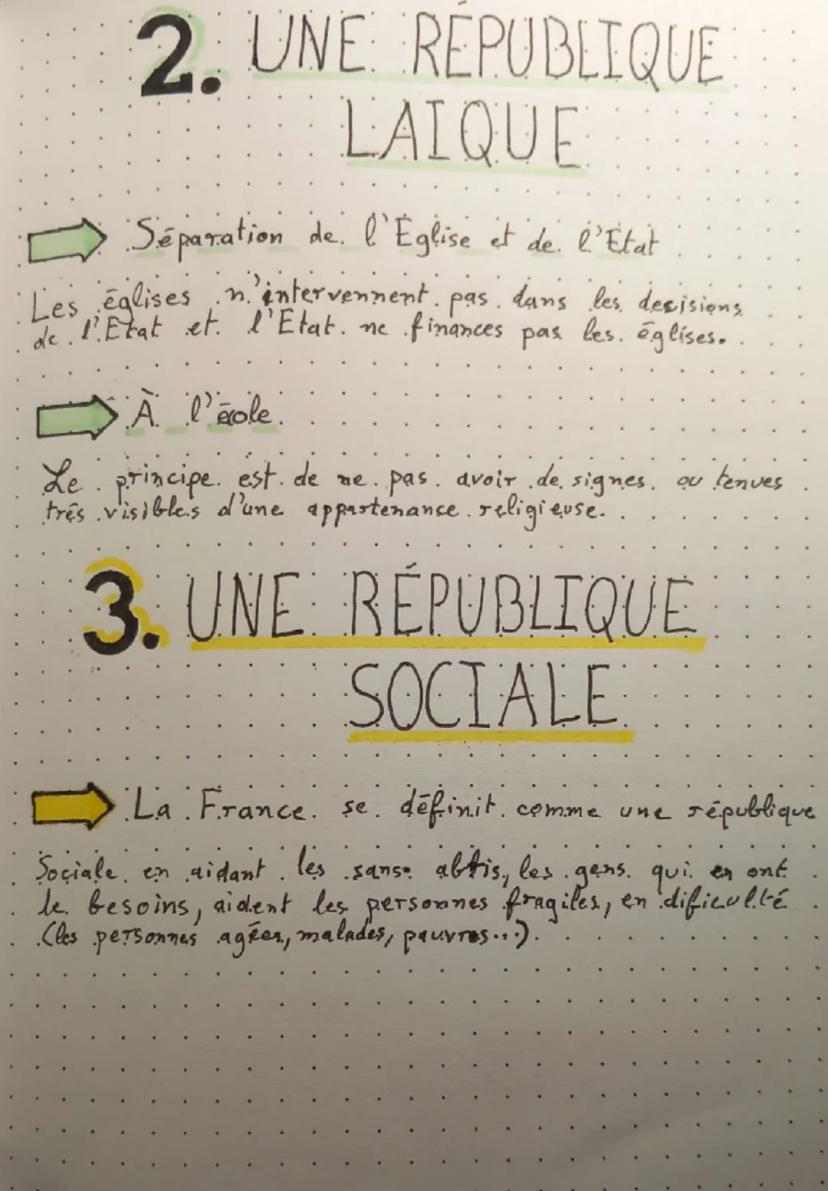 2. UNE RÉPUBLIQUE
LAIQUE
Séparation de l'Église et de l'Etat
Les églises n'intervennent pas dans les decisions
de l'Etat et l'Etat ne finances pas les églises.
À l'école
Le principe est de ne pas avoir de signes ou tenues
très visibles d'une appartenance religieuse.
3. UNE RÉPUBLIQUE
SOCIALE
La France se définit comme une république
Sociale en aidant les sans abris, les gens qui en ont
le besoins, aident les personnes fragiles, en dificulté
(les personnes agées, malades, pauvres...).